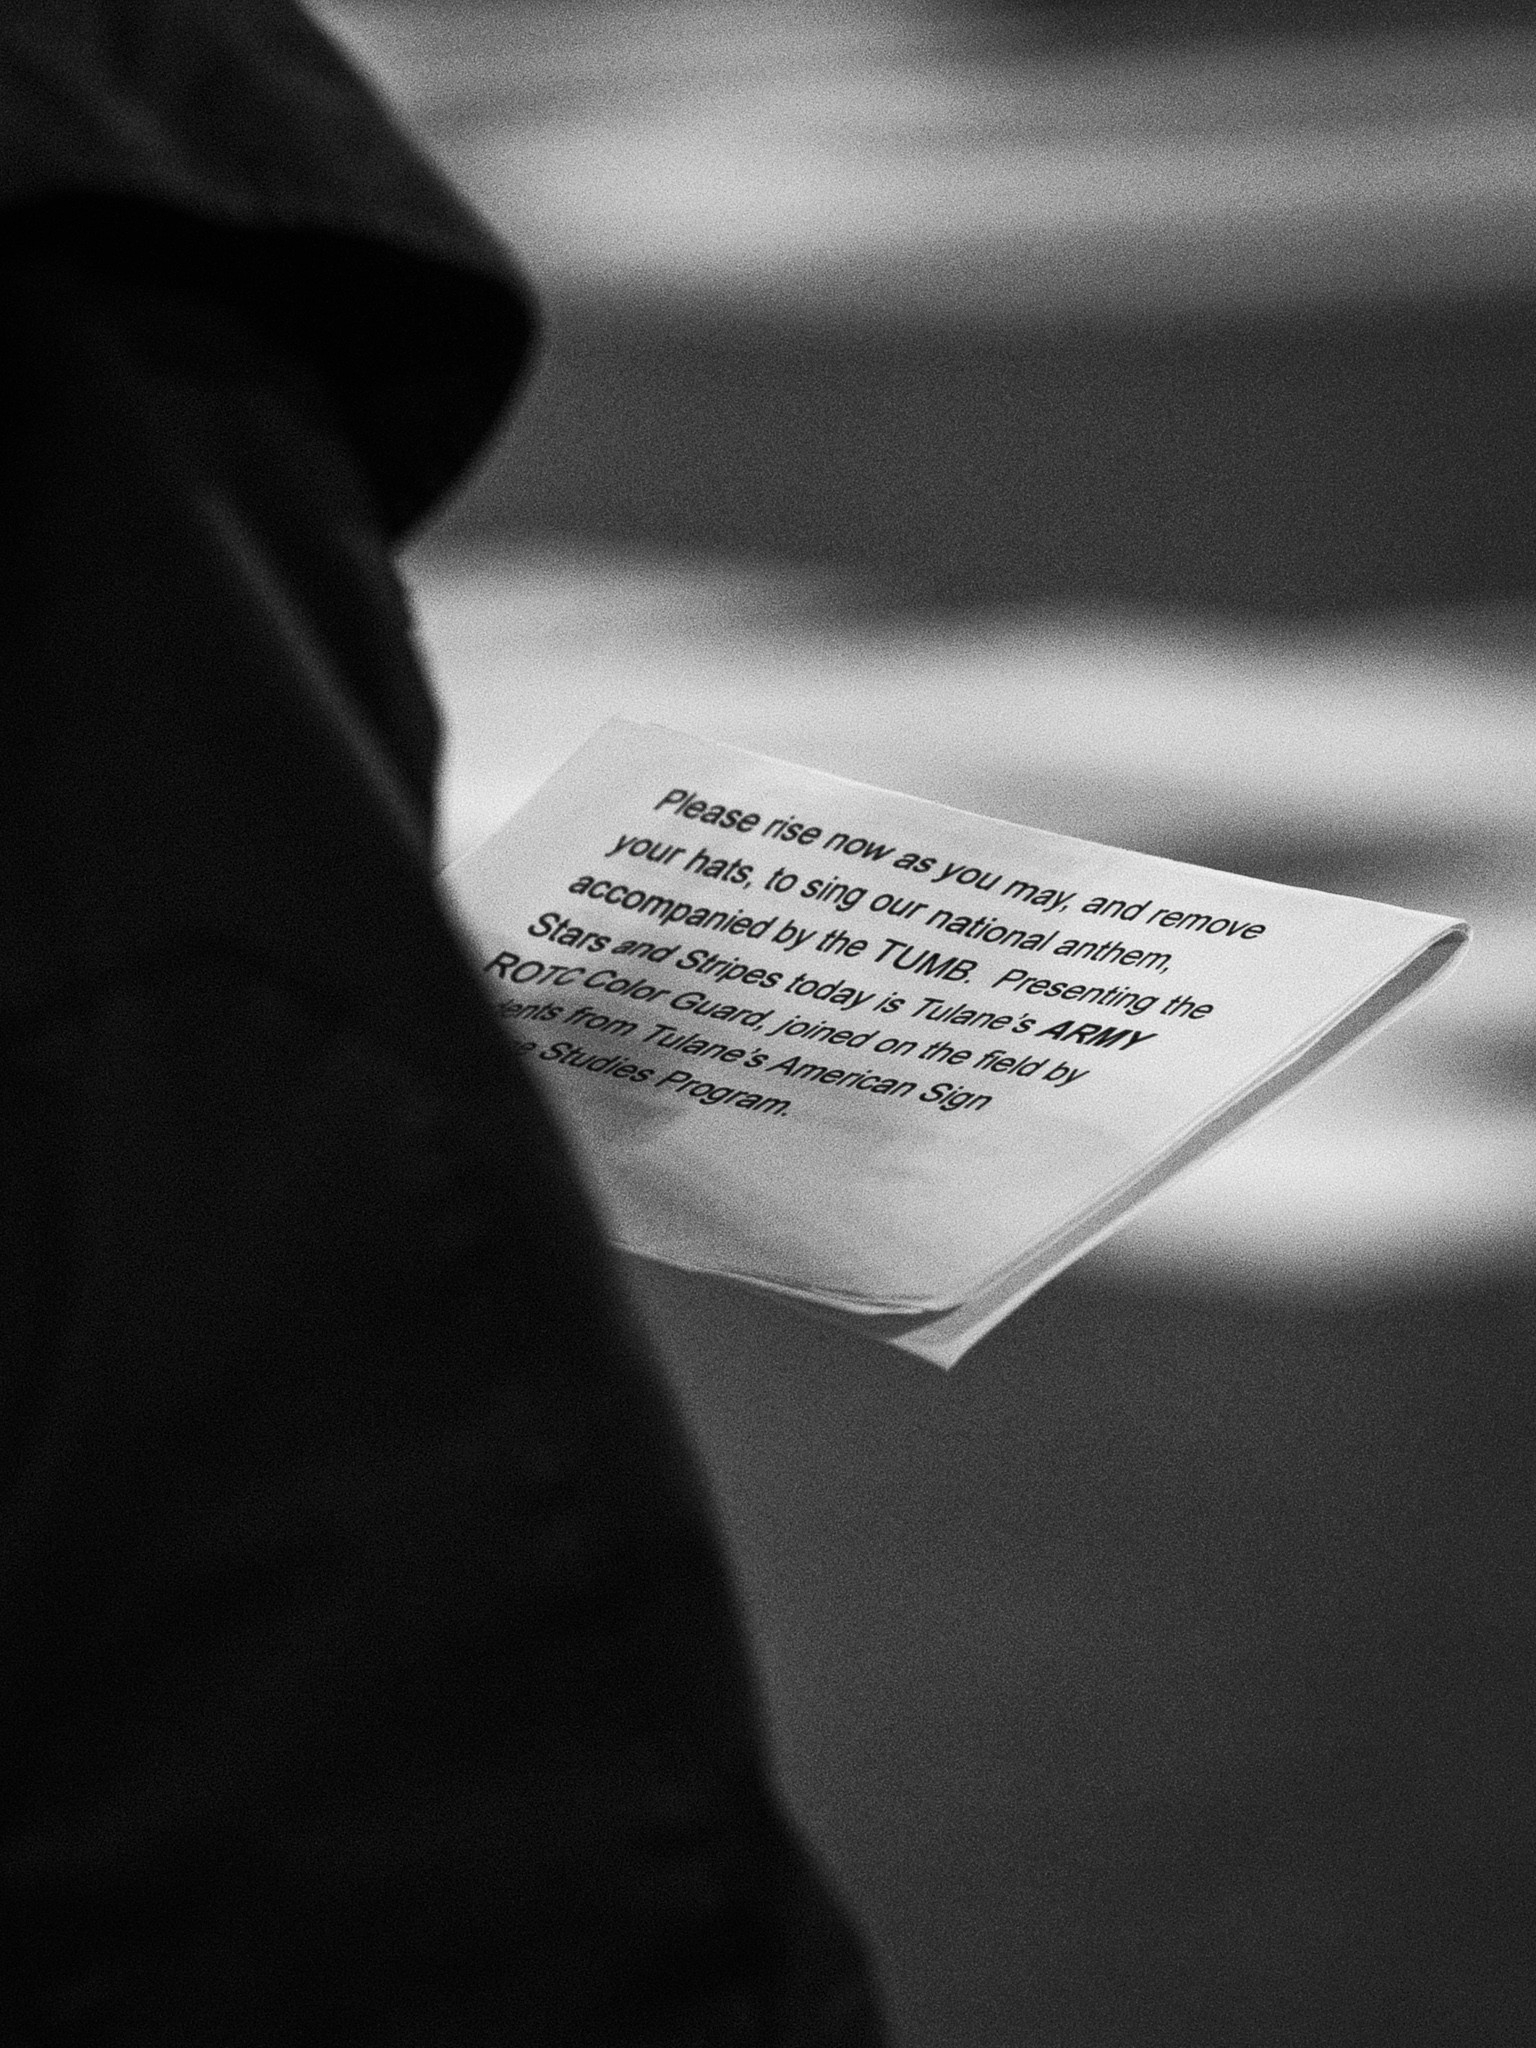 Please rise now as you may, and remove
your hats, to sing our national anthem,
accompanied by the TUMB. Presenting the
Stars and Stripes today is Tulane's ARMY
ROTC Color Guard, joined on the field by
from Tulane's American Sign
Studies Program.